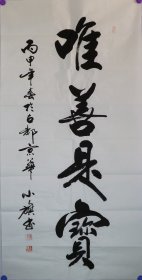 唯善是寶
丙申年春於古都京華
小旗書